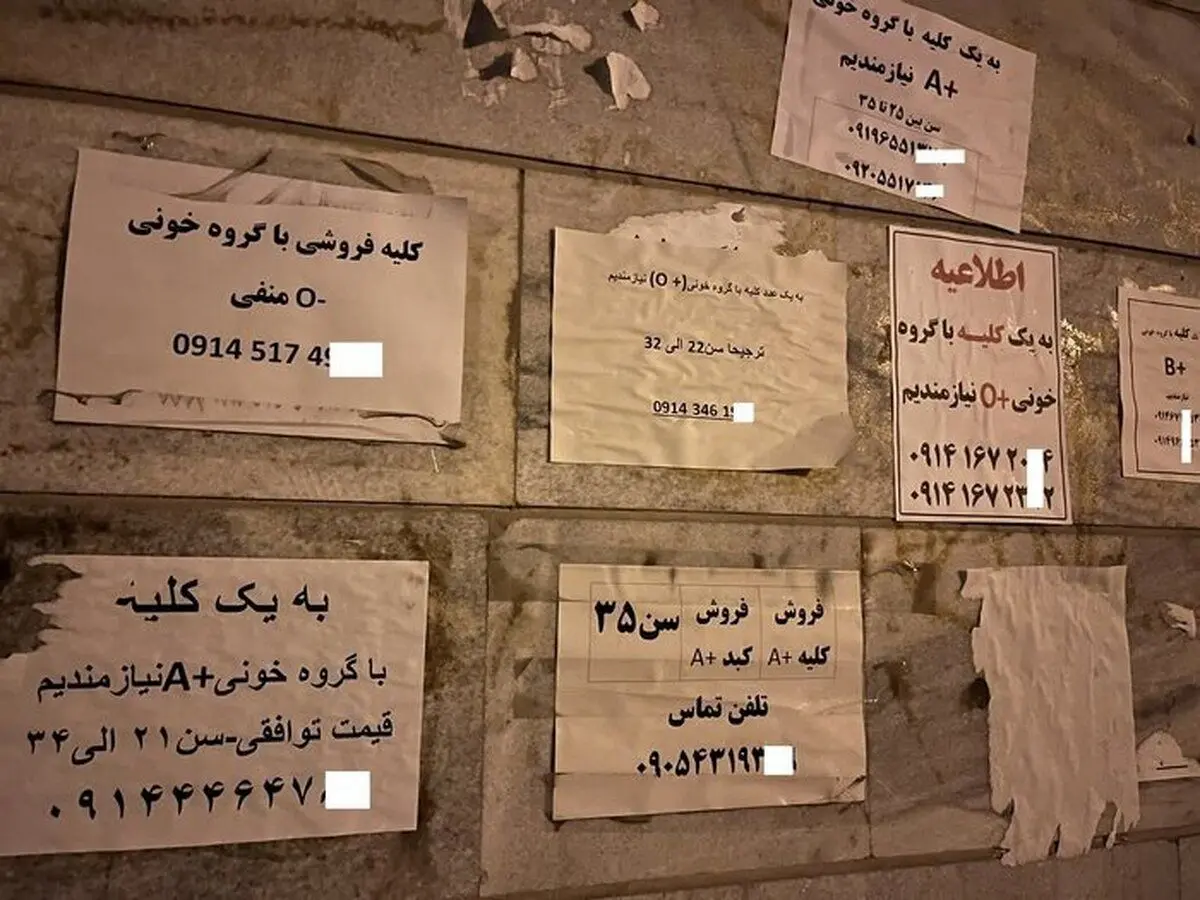 به یک کلیه با گروه خونی
A+ نیازمندیم
سن بین ۲۵ تا ۳۵
۰۹۱۹۶۵۵۱۳
۰۹۲۰۵۵۱۷
کلیه فروشی با گروه خونی
O- منفی
0914 517 49
به یک عدد کلیه با گروه خونی(O +) نیازمندیم
ترجیحا سن22 الی 32
0914 346 1
اطلاعیه
به یک کلیه با گروه
خونی+O نیازمندیم
۰۹۱۴ ۱۶۷ ۲۰ ۴
۰۹۱۴ ۱۶۷ ۲۳ ۲
کلیه با گروه خونی
B+
نیازمندیم
به یک کلیه
با گروه خونی+Aنیازمندیم
قیمت توافقی-سن۲۱ الی۳۴
۰۹۱۴۴۴۶۴۷
فروش کلیه +A
فروش کبد +A
سن۳۵
تلفن تماس
۰۹۰۵۴۳۱۹۳